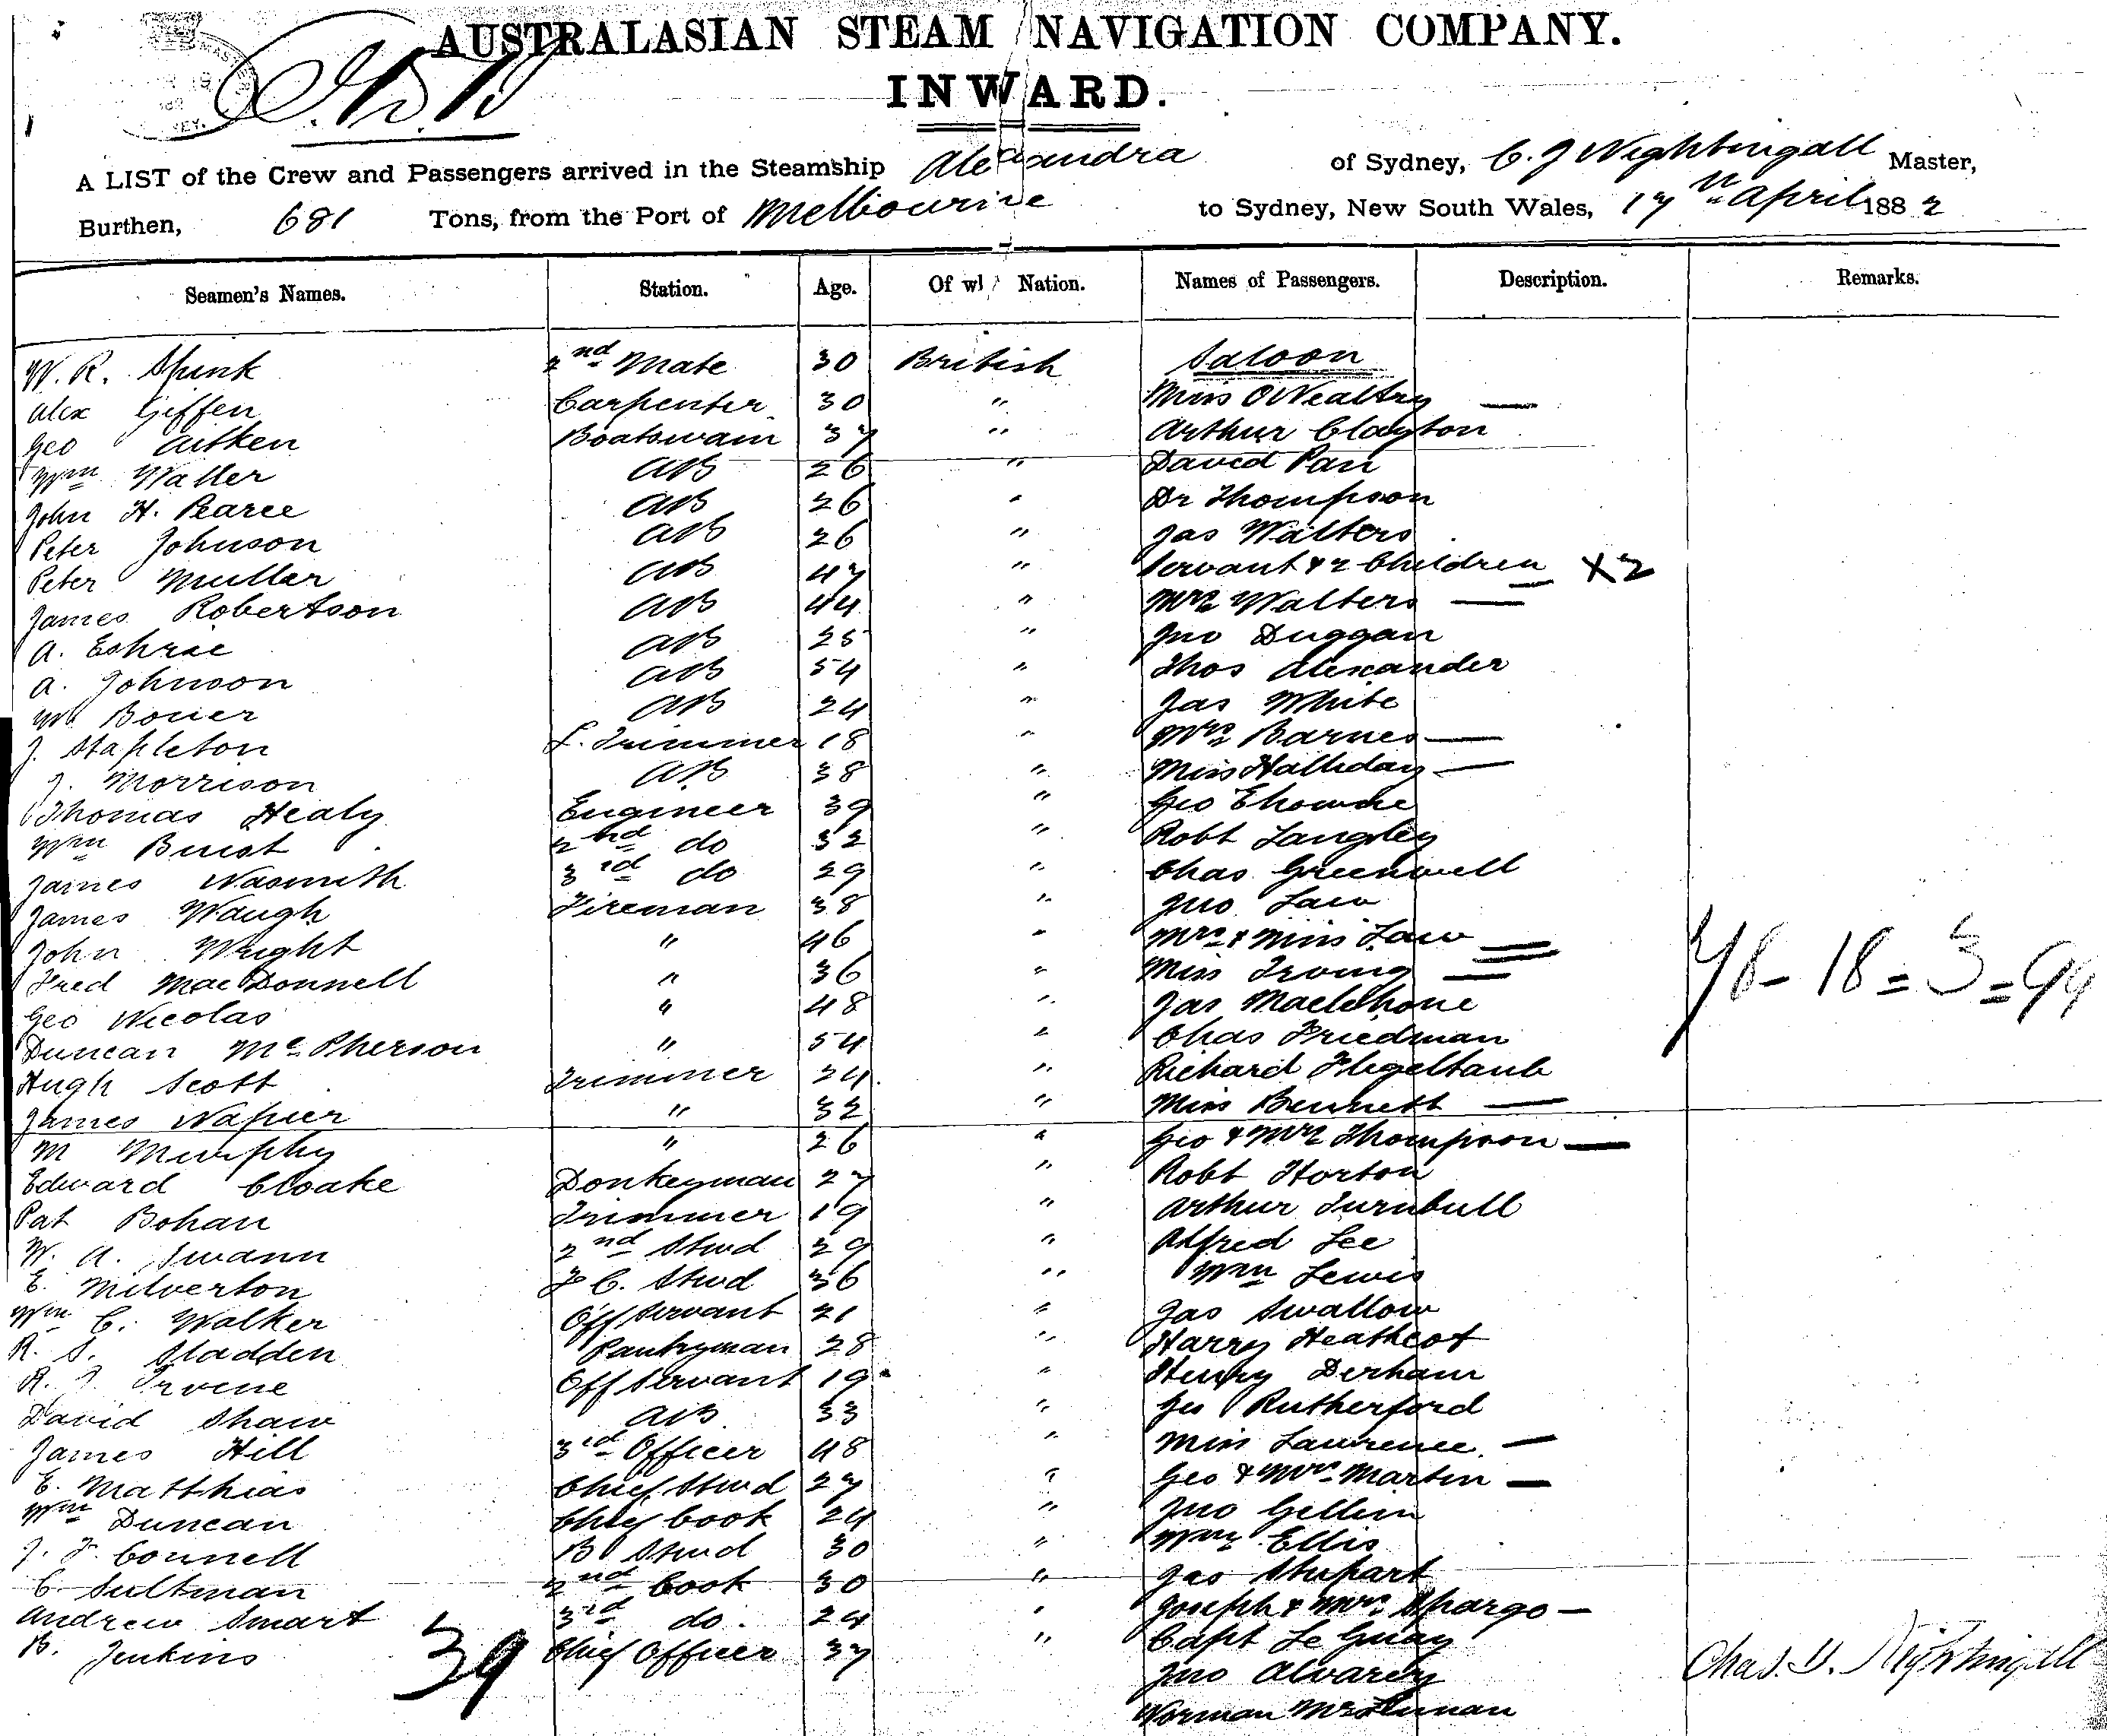 AUSTRALASIAN STEAM NAVIGATION COMPANY.
INWARD.
A LIST of the Crew and Passengers arrived in the Steamship Alexandra of Sydney, C. J Nightingall Master,
Burthen, 681 Tons, from the Port of Melbourne to Sydney, New South Wales, 17th April 1882
Seamen's Names. Station. Age. Of wh Nation. Names of Passengers. Description. Remarks.
W. R. Spink 2nd Mate 30 British Saloon
Alex Geffen Carpenter 30 " Miss
Geo Aitken Boatswain 37 " Arthur Clayton
Wm Waller AB 26 " David Pan
John H. Pearce AB 26 " Dr Thompson
Peter Johnson AB 26 " Jas Walters
Peter Muller AB 47 " Servant & 2 Children X2
James Robertson AB 44 " Mrs Walters —
A. AB 25 " Jno Duggan
A. Johnson AB 54 " Thos Alexander
Wm Bouer AB 24 " Jas White
J. Stapleton L. Trimmer 18 " Mrs Barnes —
J. Morrison AB 38 " Miss Halliday —
Thomas Healy Engineer 39 " Geo
Wm Buist 2nd do 32 " Robt Langley
James Nasmith 3rd do 29 " Chas Greenwell
James Waugh Fireman 38 " Jno Law
John Wright " 46 " Mrs & Miss Law =
Fred MacDonnell " 36 " Miss Irving —
Geo Nicolas " 48 " Jas MacElhone
Duncan McPherson " 54 " Chas Friedman
Hugh Scott Trimmer 24 " Richard Flegeltaub
James Napier " 32 " Miss Bennett —
M Murphy " 26 " Geo & Mrs Thompson —
Edward Cloake Donkeyman 27 " Robt Horton
Pat Bohan Trimmer 19 " Arthur Turnbull
W. A. Swann 2nd Stwd 29 " Alfred Lee
E. Milverton F C. Stwd 36 " Wm Lewis
Wm C. Walker Off Servant 21 " Jas Swallow
R. S. Sladden Pantryman 28 " Harry Heathcot
R. J. Irvene Off Servant 19 " Henry Derham
David Shaw AB 33 " Geo Rutherford
James Hill 3rd Officer 48 " Miss Lawrence —
E. Matthias Chief Stwd 27 " Geo & Mrs Martin —
Wm Duncan Chief Cook 24 " Jno Gellim
J. F. Connell B Stwd 30 " Wm Ellis
C. Sultman 2nd Cook 30 " Jas Stupart
Andrew Smart 3rd do. 24 " Joseph & Mrs Spargo —
B. Jenkins Chief Officer 37 " Capt Le Guay
39
Jno Alvarey
Norman
78 - 18 = 3 = 99
Chas. J. Nightingall